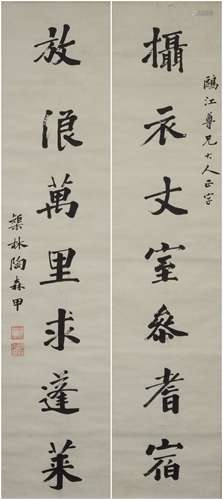 鷗江尊兄大人正字
攝衣丈室參耆宿
放浪萬里求蓬萊
榘林陶森甲